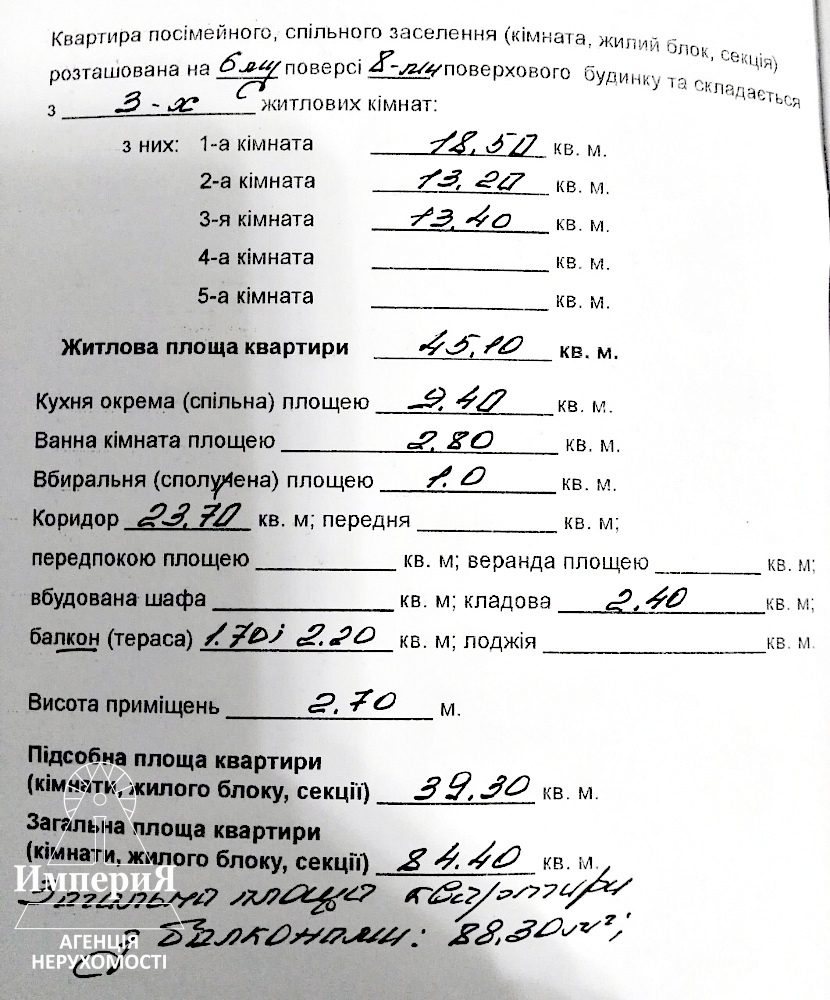 Квартира посімейного, спільного заселення (кімната, жилий блок, секція)
розташована на 6му поверсі 8-ми поверхового будинку та складається
з 3-х житлових кімнат:
з них: 1-а кімната 18.50 кв. м.
2-а кімната 13.20 кв. м.
3-я кімната 13.40 кв. м.
4-а кімната кв. м.
5-а кімната кв. м.
Житлова площа квартири 45.10 кв. м.
Кухня окрема (спільна) площею 9.40 кв. м.
Ванна кімната площею 2.80 кв. м.
Вбиральня (сполучена) площею 1.0 кв. м.
Коридор 23.70 кв. м; передня кв. м;
передпокою площею кв. м; веранда площею кв. м;
вбудована шафа кв. м; кладова 2.40 кв. м;
балкон (тераса) 1.70; 2.20 кв. м; лоджія кв. м.
Висота приміщень 2.70 м.
Підсобна площа квартири
(кімнати, жилого блоку, секції) 39.30 кв. м.
Загальна площа квартири
(кімнати, жилого блоку, секції) 84.40 кв. м.
Загальна площа квартири
з балконами: 88.30 м²;
ИмпериЯ
АГЕНЦІЯ
НЕРУХОМОСТІ